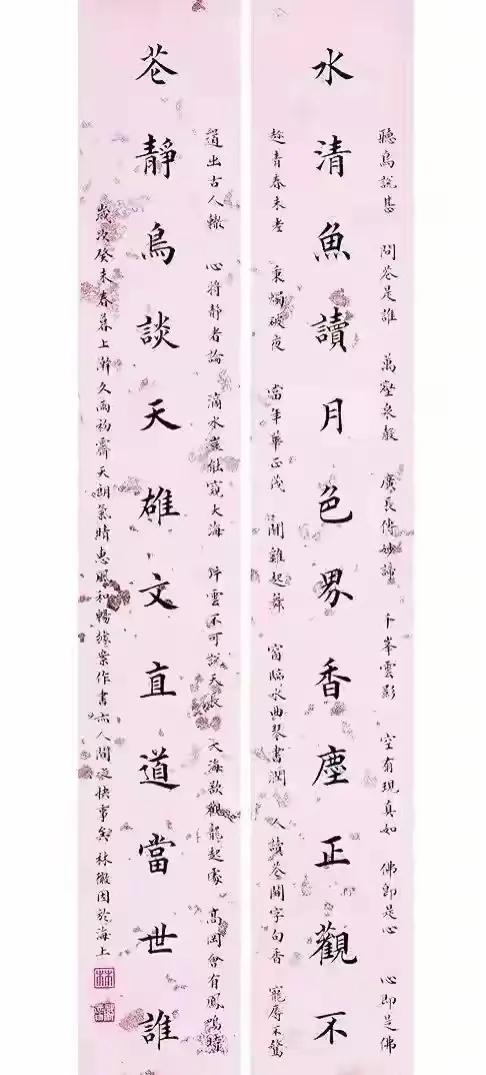 聽鳥說甚 問花是誰 萬壑泉聲 廣長傳妙諦 千峯雲影 空有現真如 佛即是心 心即是佛
水清魚讀月色界香塵正觀不
趁青春未老 秉燭破夜 當年華正茂 聞雞起舞 窗臨水曲琴書潤 人讀花間字句香 寵辱不驚
道出古人轍 心將靜者論 滴水豈能窺大海 片雲不可說天長 大海欲觀龍起處 高岡會有鳳鳴時
花靜鳥談天雄文直道當世誰
歲次癸未春暮上澣久雨初霽天朗氣晴惠風和暢據案作書亦人間快事矣 林徽因於海上